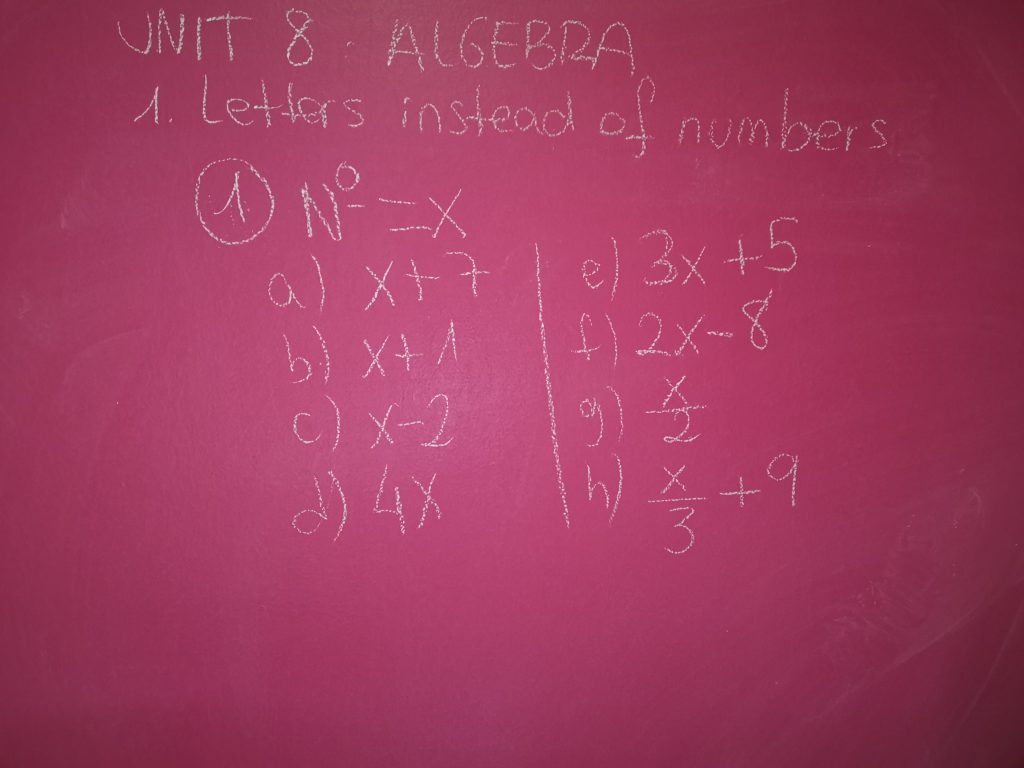 UNIT 8. ALGEBRA
1. Letters instead of numbers
① Nº = x
a) x+7
b) x+1
c) x-2
d) 4x
e) 3x+5
f) 2x-8
g) x/2
h) x/3 +9